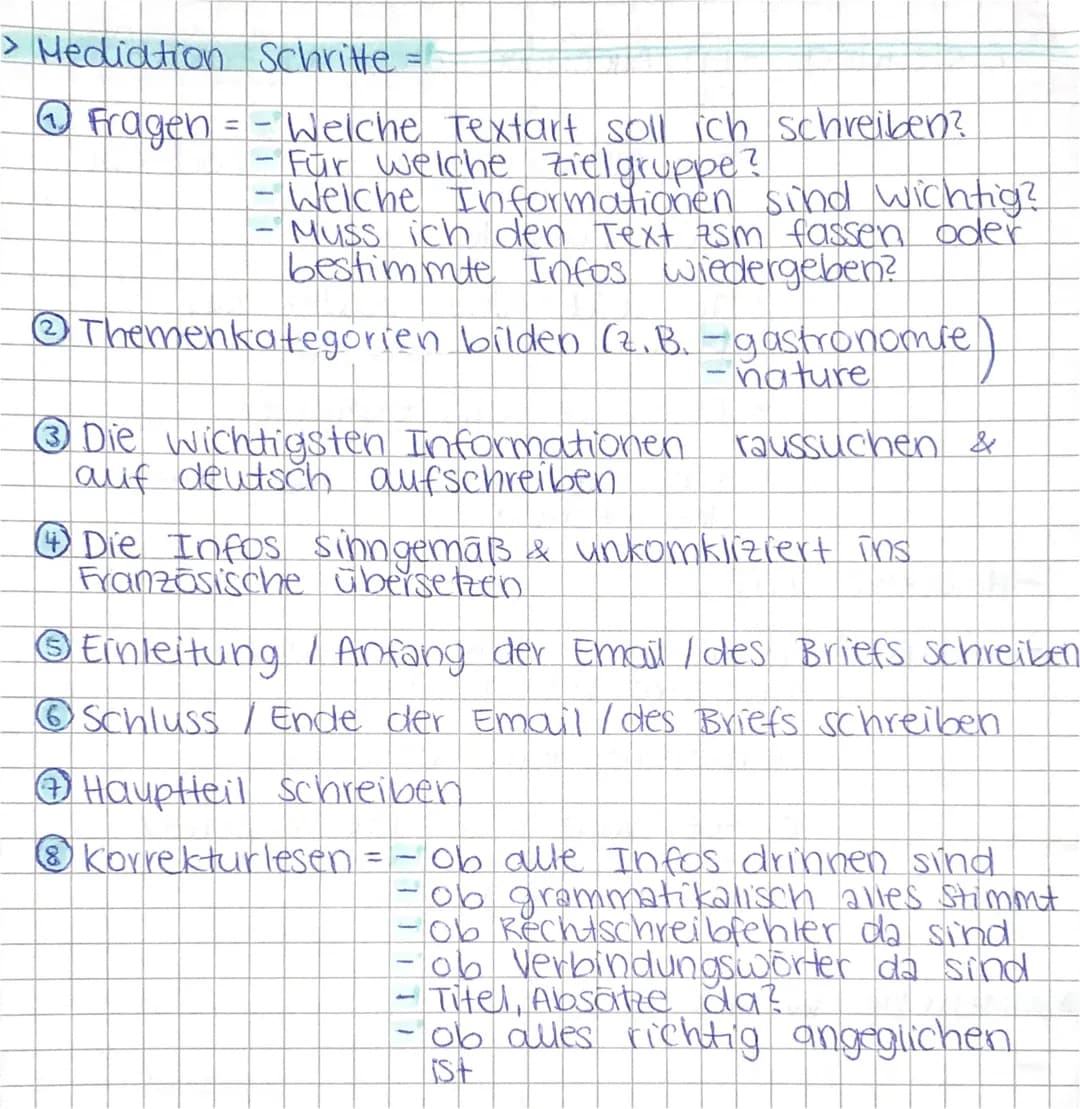 > Mediation Schritte =
① Fragen = - Welche Textart soll ich schreiben?
- Für welche Zielgruppe?
- Welche Informationen sind wichtig?
- Muss ich den Text zsm fassen oder
bestimmte Infos wiedergeben?
② Themenkategorien bilden (z.B. - gastronomie)
- nature
③ Die wichtigsten Informationen raussuchen &
auf deutsch aufschreiben
④ Die Infos sinngemäß & unkomkliziert ins
Französische übersetzen
⑤ Einleitung / Anfang der Email / des Briefs schreiben
⑥ Schluss / Ende der Email / des Briefs schreiben
⑦ Hauptteil schreiben
⑧ Korrekturlesen = - ob alle Infos drinnen sind
- ob grammatikalisch alles stimmt
- ob Rechtschreibfehler da sind
- ob Verbindungswörter da sind
- Titel, Absätze da?
- ob alles richtig angeglichen
ist